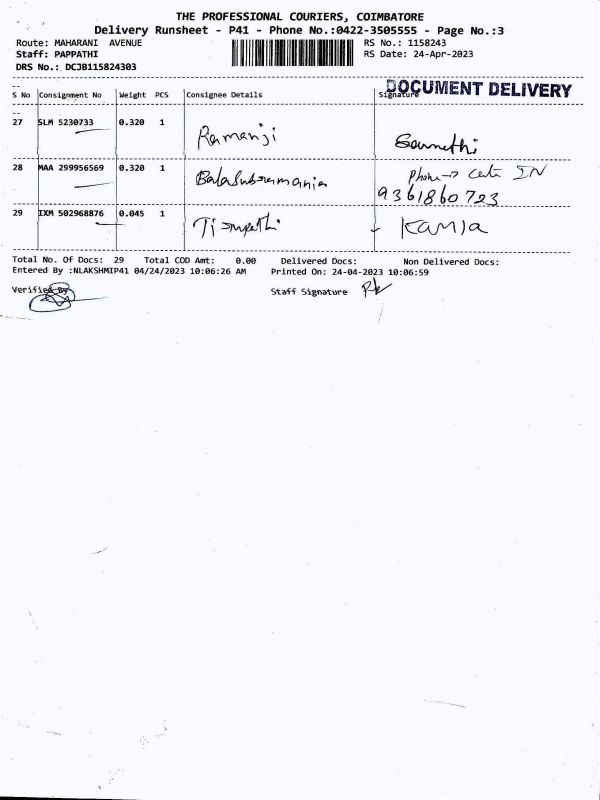 THE PROFESSIONAL COURIERS, COIMBATORE
Delivery Runsheet - P41 - Phone No.:0422-3505555 - Page No.:3
Route: MAHARANI AVENUE RS No.: 1158243
Staff: PAPPATHI RS Date: 24-Apr-2023
DRS No.: DCJB115824303
DOCUMENT DELIVERY
S No Consignment No Weight PCS Consignee Details Signature
27 SLM 5230733 0.320 1 Ramanji
28 MAA 299956569 0.320 1 Balasubramania Phone
9361860723
29 IXM 502968876 0.045 1 Kamla
Total No. Of Docs: 29 Total COD Amt: 0.00 Delivered Docs: Non Delivered Docs:
Entered By :NLAKSHMIP41 04/24/2023 10:06:26 AM Printed On: 24-04-2023 10:06:59
Verified By Staff Signature